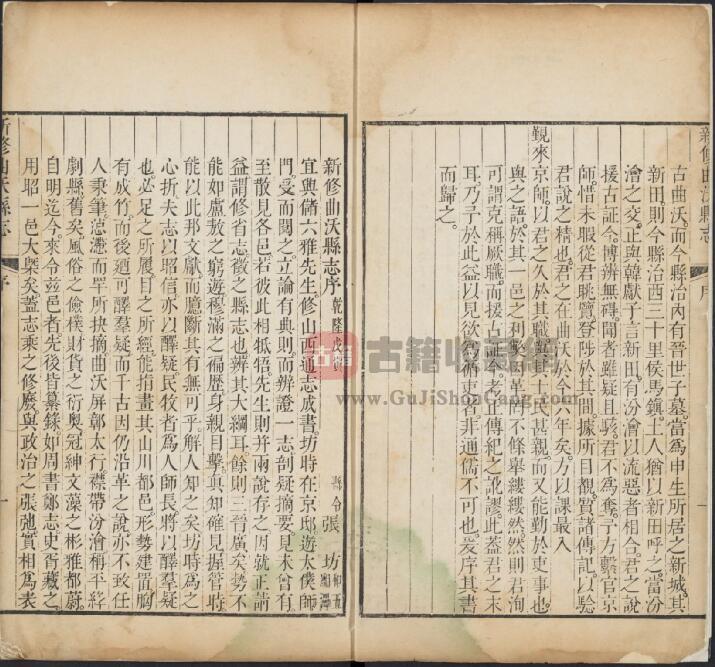 新修曲沃縣志
序
一
古曲沃而今縣治內有晉世子墓當爲申生所居之新城其
新田則今縣治西三十里侯馬鎮土人猶以新田呼之當汾
澮之交正與韓獻子言新田有汾澮以流惡者相合君之說
援古証今博辨無礙聞者雖疑且駭君不爲奪予方繫官京
師惜未暇從君眺覽登陟於其間據所目覩質諸傳記以騐
君說之精也君之在曲沃於今六年矣方以課最入
覲來京師以君之久於其職與其士民甚親而又能勤於吏事也
與之語於其一邑之利弊沿革罔不條舉縷縷然然則君洵
可謂克稱厥職而援古証今考正傳紀之訛謬此蓋君之末
耳乃予於此益以見欲爲循吏者非通儒不可也爰序其書
而歸之
新修曲沃縣志序
乾隆戊
縣令張坊
湘潭
宜興儲六雅先生修山西通志成書坊時在京邸遊太僕師
門受而閱之立論有典則而辨證一志剖疑摘要見未曾有
至散見各邑若彼此相牴牾先生則并兩說存之因就正請
益謂修省志徵之縣志也辨其大綱耳餘則三晉廣矣勢不
能如盧敖之窮遊穆滿之徧歷身親目擊真知確見握管時
能以此那文獻而臆斷其有無可乎解人知之矣坊時爲之
心折夫志以昭信亦以釋疑民牧者爲人師長將以釋羣疑
也必足之所履目之所經能指畫其山川都邑形勢建置胸
有成竹而後迺可釋羣疑而千古因仍沿革之說亦不致任
人秉筆懣瀰而罕所抉摘曲沃屏郭太行襟帶汾澮稱平絳
劇縣舊矣風俗之儉樸財貨之衍奧冠紳文藻之彬雅都蔚
自明迄今來令茲邑者先後皆纂錄如周書鄭志史胥藏之
用昭一邑大槩矣蓋志乘之修廢與政治之張弛實相爲表
新修曲沃縣志
序
一
古籍
古籍收藏網
www.GuJiShouCang.com